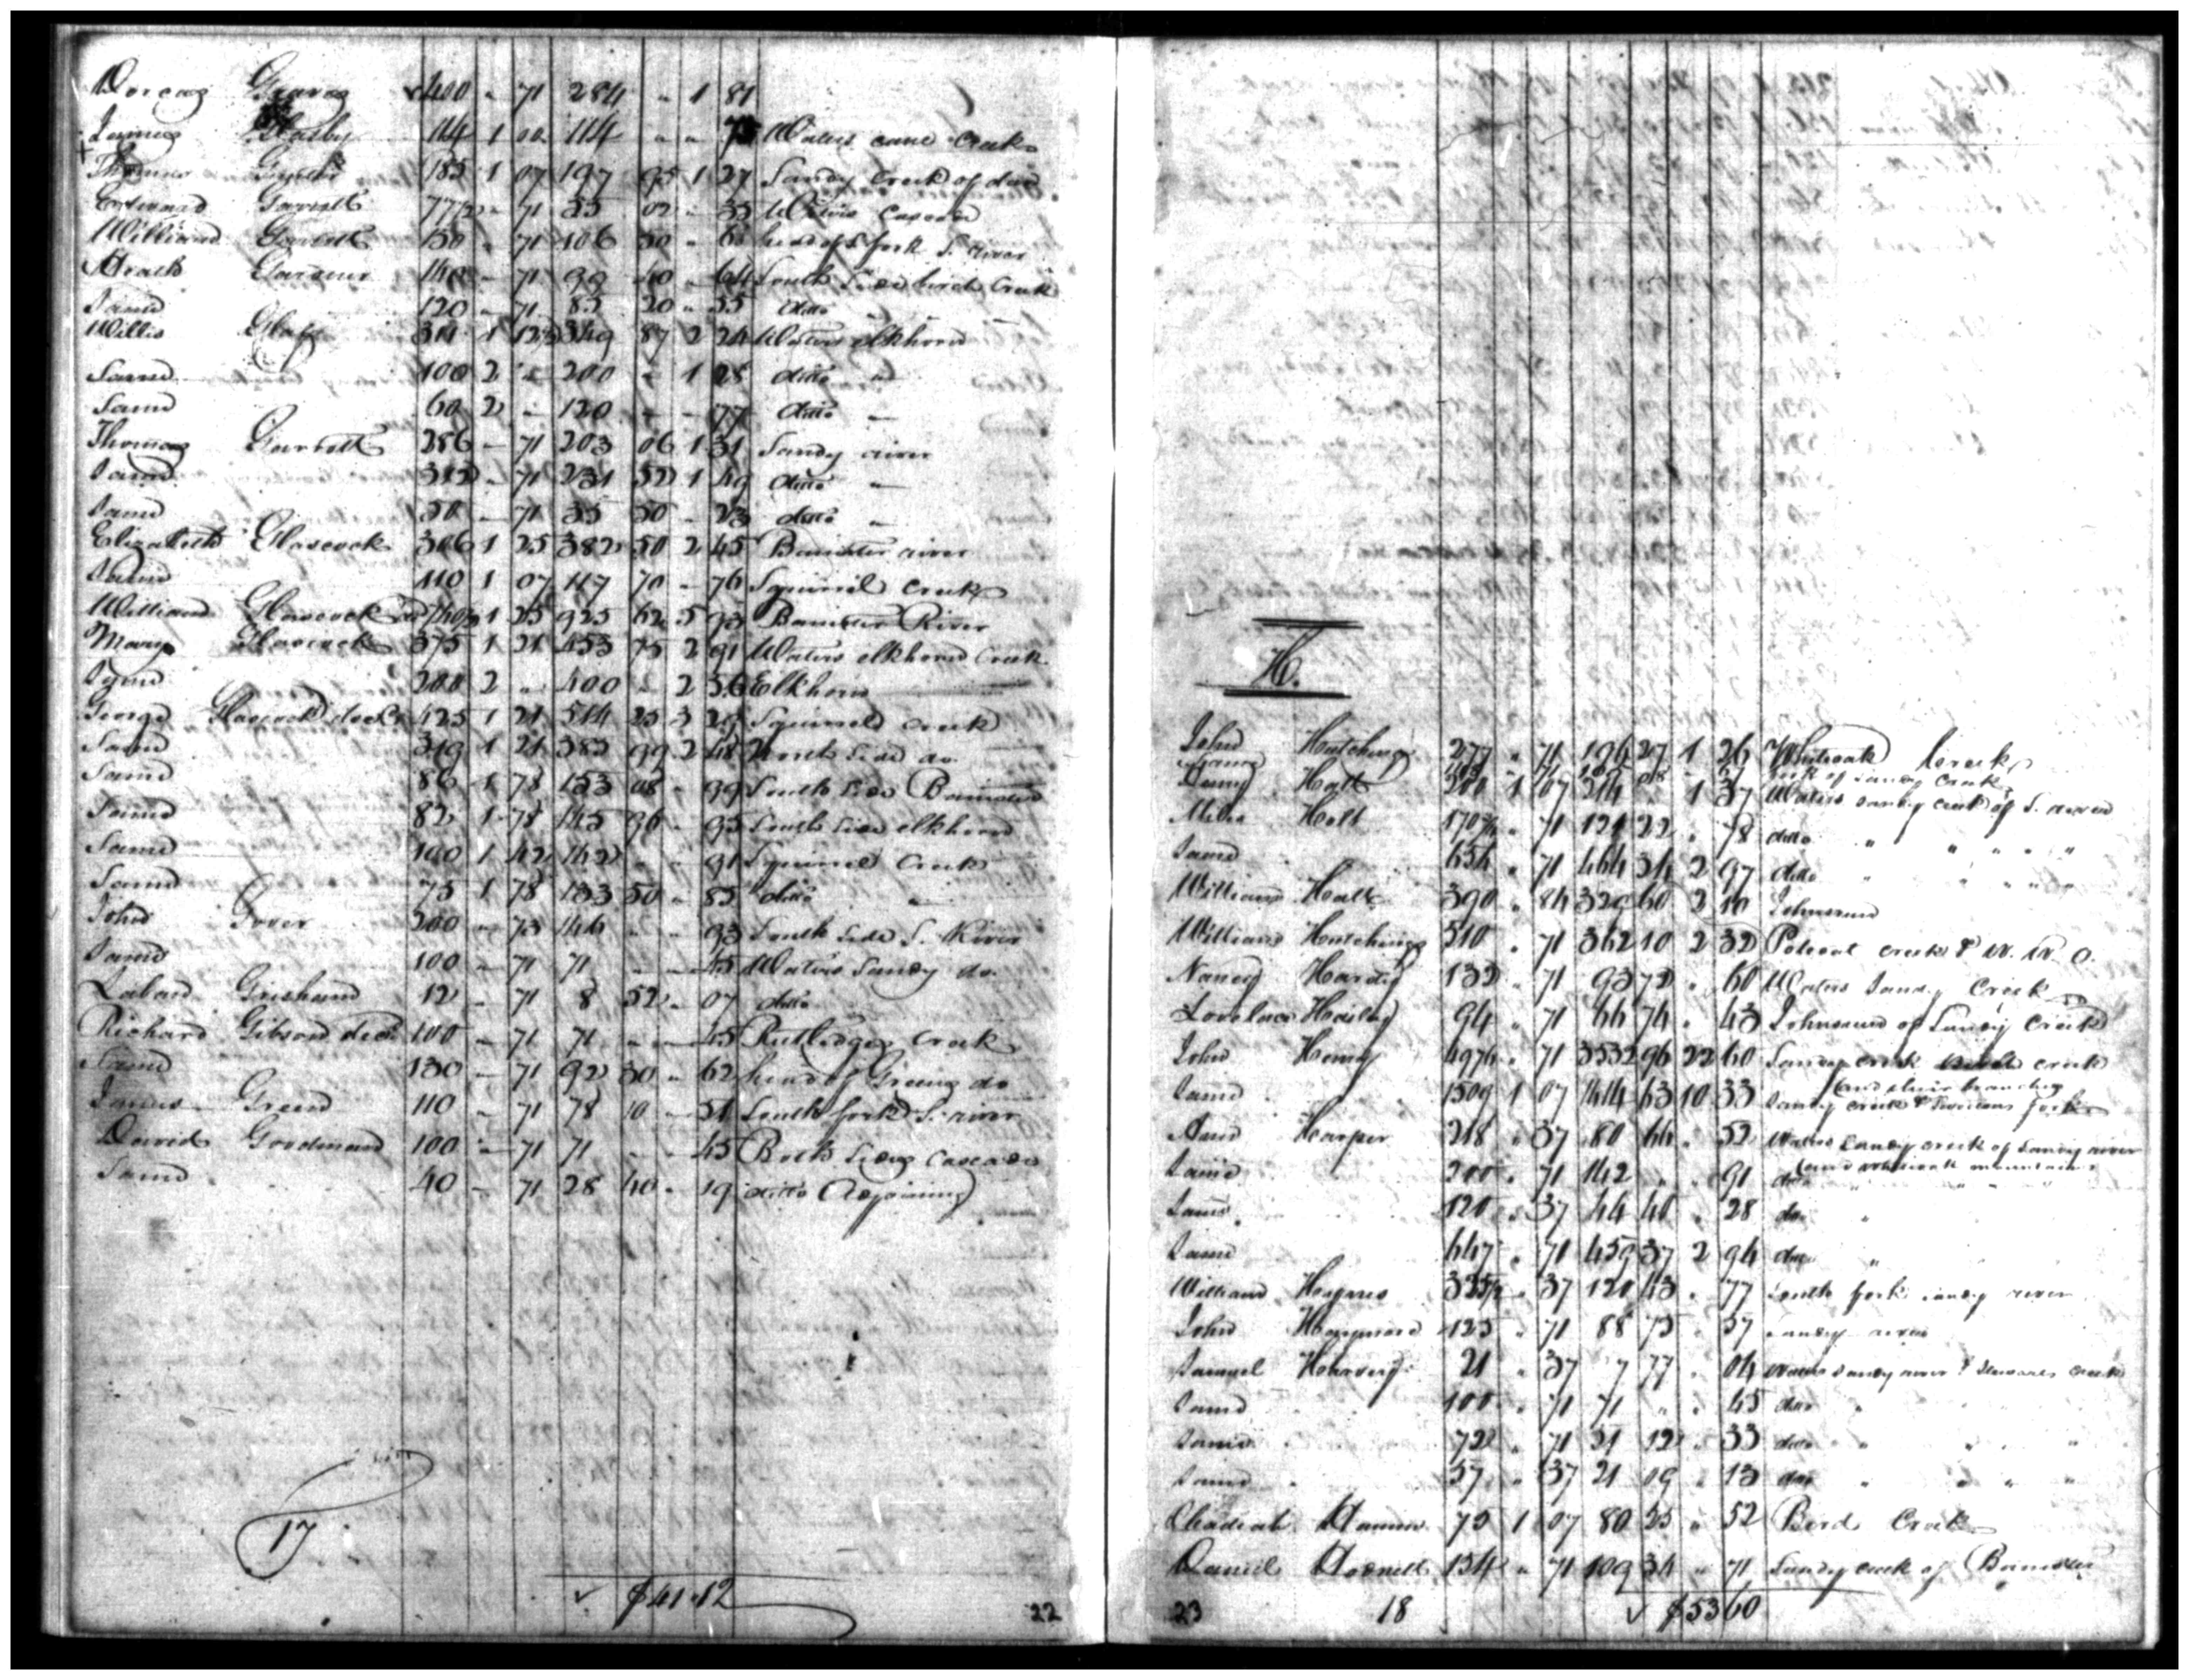 Dorcas Graves 400 " 71 284 " 1 81
James 114 1 00 114 " " 73 Waters cane Creek
Thomas 185 1 07 197 95 1 27 Sandy Creek of dan
Edward Garrett 77 1/2 " 71 55 02 " 35 Waters Cascade
William Garrett 150 " 71 106 50 " 68 head of S. fork S. river
Heath Gardner 140 " 71 99 40 " 64 South side birch Creek
Same 120 " 71 85 20 " 55 ditto
Willis 311 1 12 1/2 349 87 2 24 Waters elkhorn
Same 100 2 " 200 " 1 28 ditto "
Same 60 2 " 120 " " 77 ditto "
Thomas Garrett 286 " 71 203 06 1 31 Sandy river
Same " 71 231 52 1 49 ditto "
Same 50 " 71 35 50 " 23 ditto "
Elizabeth Glascock 306 1 25 382 50 2 45 Banister river
Same 110 1 07 117 70 " 76 Squirrel creek
William Glascock 740 1/2 1 25 925 62 5 93 Banister River
Mary Glascock 375 1 21 453 75 2 91 Waters elkhorn Creek
Same 200 2 " 400 " 2 56 Elkhorn
George Glascock decd 425 1 21 514 25 3 29 Squirrel creek
Same 319 1 21 385 99 2 48 North side do.
Same 86 1 78 153 08 " 99 South side Banister
Same 82 1 78 145 96 " 95 South side elkhorn
Same 100 1 42 142 " " 91 Squirrel Creek
Same 75 1 78 133 50 " 85 ditto "
John Gover 200 " 73 146 " " 93 South side S. River
Same 100 " 71 71 " " 45 Waters Sandy do.
Laban Grisham 12 " 71 8 52 " 07 ditto
Richard Gibson decd 100 " 71 71 " " 45 Rutledges Creek
Same 130 " 71 92 30 " 62 head of Greens do
James Green 110 " 71 78 10 " 51 South fork S. river
David Goodman 100 " 71 71 " " 45 Both sides Cascade
Same 40 " 71 28 40 " 19 ditto Adjoining
17
$41.12
22
H.
John Hutchings 277 " 71 196 27 1 26 Whiteoak Creek
Same fork of Sandy Creek
Holt 200 1 07 214 " 1 37 Waters sandy creek of S. river
Miles Holt 170 3/4 " 71 121 22 " 78 ditto " " " " "
Same 654 " 71 464 34 2 97 ditto " " " "
William Hall 390 " 84 60 2 10 Johnsrun
William Hutchings 510 " 71 362 10 2 32 Polecat creek & W. W. O.
Nancy Hardy 132 " 71 93 72 " 60 Waters Sandy Creek
Lovelace Hailey 94 " 71 66 74 " 43 Johnsrun of Sandy Creek
John Henry 4976 " 71 3532 96 22 60 Sandy creek creek
and their branches
Same 1509 1 07 1614 63 10 33 Sandy creek & fork
Harper 218 " 37 80 66 " 52 Waters Sandy creek of Sandy river
and whiteoak mountain
Same 200 " 71 142 " " 91 ditto
Same 120 " 37 44 40 " 28 do "
Same 647 " 71 459 37 2 94 ditto "
William Haynes 325 1/2 " 37 120 43 " 77 South fork sandy river
John 125 " 71 88 75 " 57 Sandy river
Samuel Harvey 21 " 37 7 77 " 04 Waters Sandy river & Stewarts creek
Same 100 " 71 71 " " 45 ditto "
Same 72 " 71 51 12 " 33 ditto " " "
Same 57 " 37 21 09 " 13 ditto " " "
Obadiah 75 1 07 80 25 " 52 Bird Creek
Daniel Hodnett 154 " 71 109 34 " 71 Sandy creek of Banister
23 18 $53 60